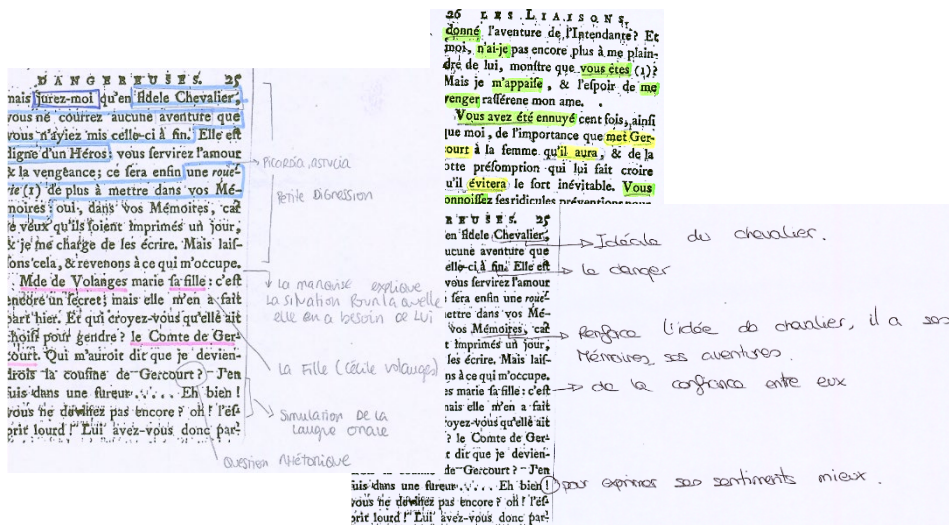 DANGEREUSES. 25
mais jurez-moi qu'en fidele Chevalier,
vous ne courrez aucune aventure que
vous n'ayiez mis celle-ci à fin. Elle est
digne d'un Héros: vous servirez l'amour
& la vengeance; ce sera enfin une roue-
rie (1) de plus à mettre dans vos Mé-
moires: oui, dans vos Mémoires, car
je veux qu'ils soient imprimés un jour,
& je me charge de les écrire. Mais lais-
sons cela, & revenons à ce qui m'occupe.
Mde de Volanges marie sa fille: c'est
encore un secret; mais elle m'en a fait
part hier. Et qui croyez-vous qu'elle ait
choisi pour gendre? le Comte de Ger-
court. Qui m'auroit dit que je devien-
drois la cousine de Gercourt? J'en
suis dans une fureur..... Eh bien!
vous ne devinez pas encore? oh! l'es-
prit lourd! Lui avez-vous donc par-
Picardía, astucia
Petite Digression
La marquise explique
la situation pour laquelle
elle en a besoin de lui
La fille (Cécile Volanges)
Simulation de la
langue orale
Question rhétorique
26 LES LIAISONS
donné l'aventure de l'Intendante? Et
moi, n'ai-je pas encore plus à me plain-
dre de lui, monstre que vous êtes (1)?
Mais je m'appaise, & l'espoir de me
venger rassérene mon ame.
Vous avez été ennuyé cent fois, ainsi
que moi, de l'importance que met Ger-
court à la femme qu'il aura, & de la
sotte présomption qui lui fait croire
qu'il évitera le sort inévitable. Vous
connoissez ses ridicules préventions pour
REUSES. 25
en fidele Chevalier,
ucune aventure que
elle-ci à fin. Elle est
vous servirez l'amour
sera enfin une roue-
mettre dans vos Mé-
vos Mémoires, car
t imprimés un jour,
es écrire. Mais lais-
ns à ce qui m'occupe.
es marie sa fille: c'est
mais elle m'en a fait
royez-vous qu'elle ait
? le Comte de Ger-
t dit que je devien-
de Gercourt? J'en
uis dans une fureur..... Eh bien!
vous ne devinez pas encore? oh! l'es-
prit lourd! Lui avez-vous donc par-
Idéale du chevalier.
le danger
Renforce l'idée do chevalier, il a ses
Mémoires, ses aventures.
de la confiance entre eux
pour exprimer ses sentiments mieux.